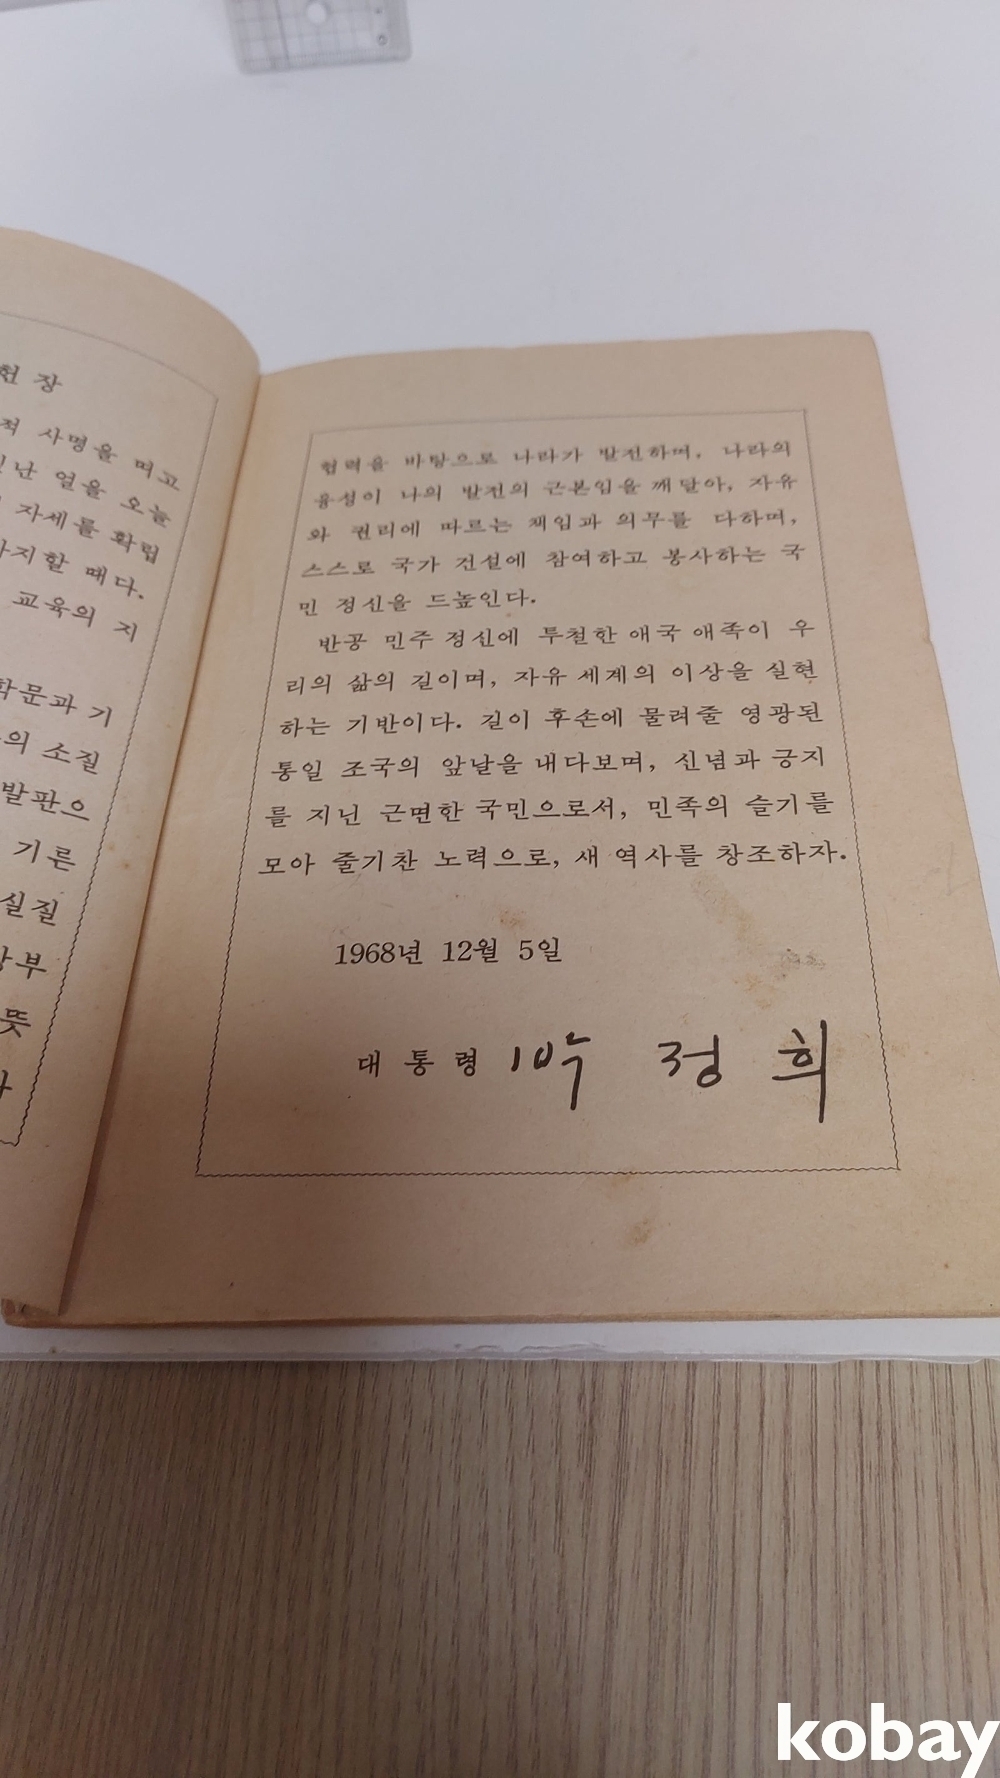 헌 장
적 사명을 띠고
난 얼을 오늘
자세를 확립
지할 때다.
교육의 지
학문과 기
의 소질
발판으
기른
실질
부
뜻
협력을 바탕으로 나라가 발전하며, 나라의
융성이 나의 발전의 근본임을 깨달아, 자유
와 권리에 따르는 책임과 의무를 다하며,
스스로 국가 건설에 참여하고 봉사하는 국
민 정신을 드높인다.
반공 민주 정신에 투철한 애국 애족이 우
리의 삶의 길이며, 자유 세계의 이상을 실현
하는 기반이다. 길이 후손에 물려줄 영광된
통일 조국의 앞날을 내다보며, 신념과 긍지
를 지닌 근면한 국민으로서, 민족의 슬기를
모아 줄기찬 노력으로, 새 역사를 창조하자.
1968년 12월 5일
대통령 박 정 희
kobay